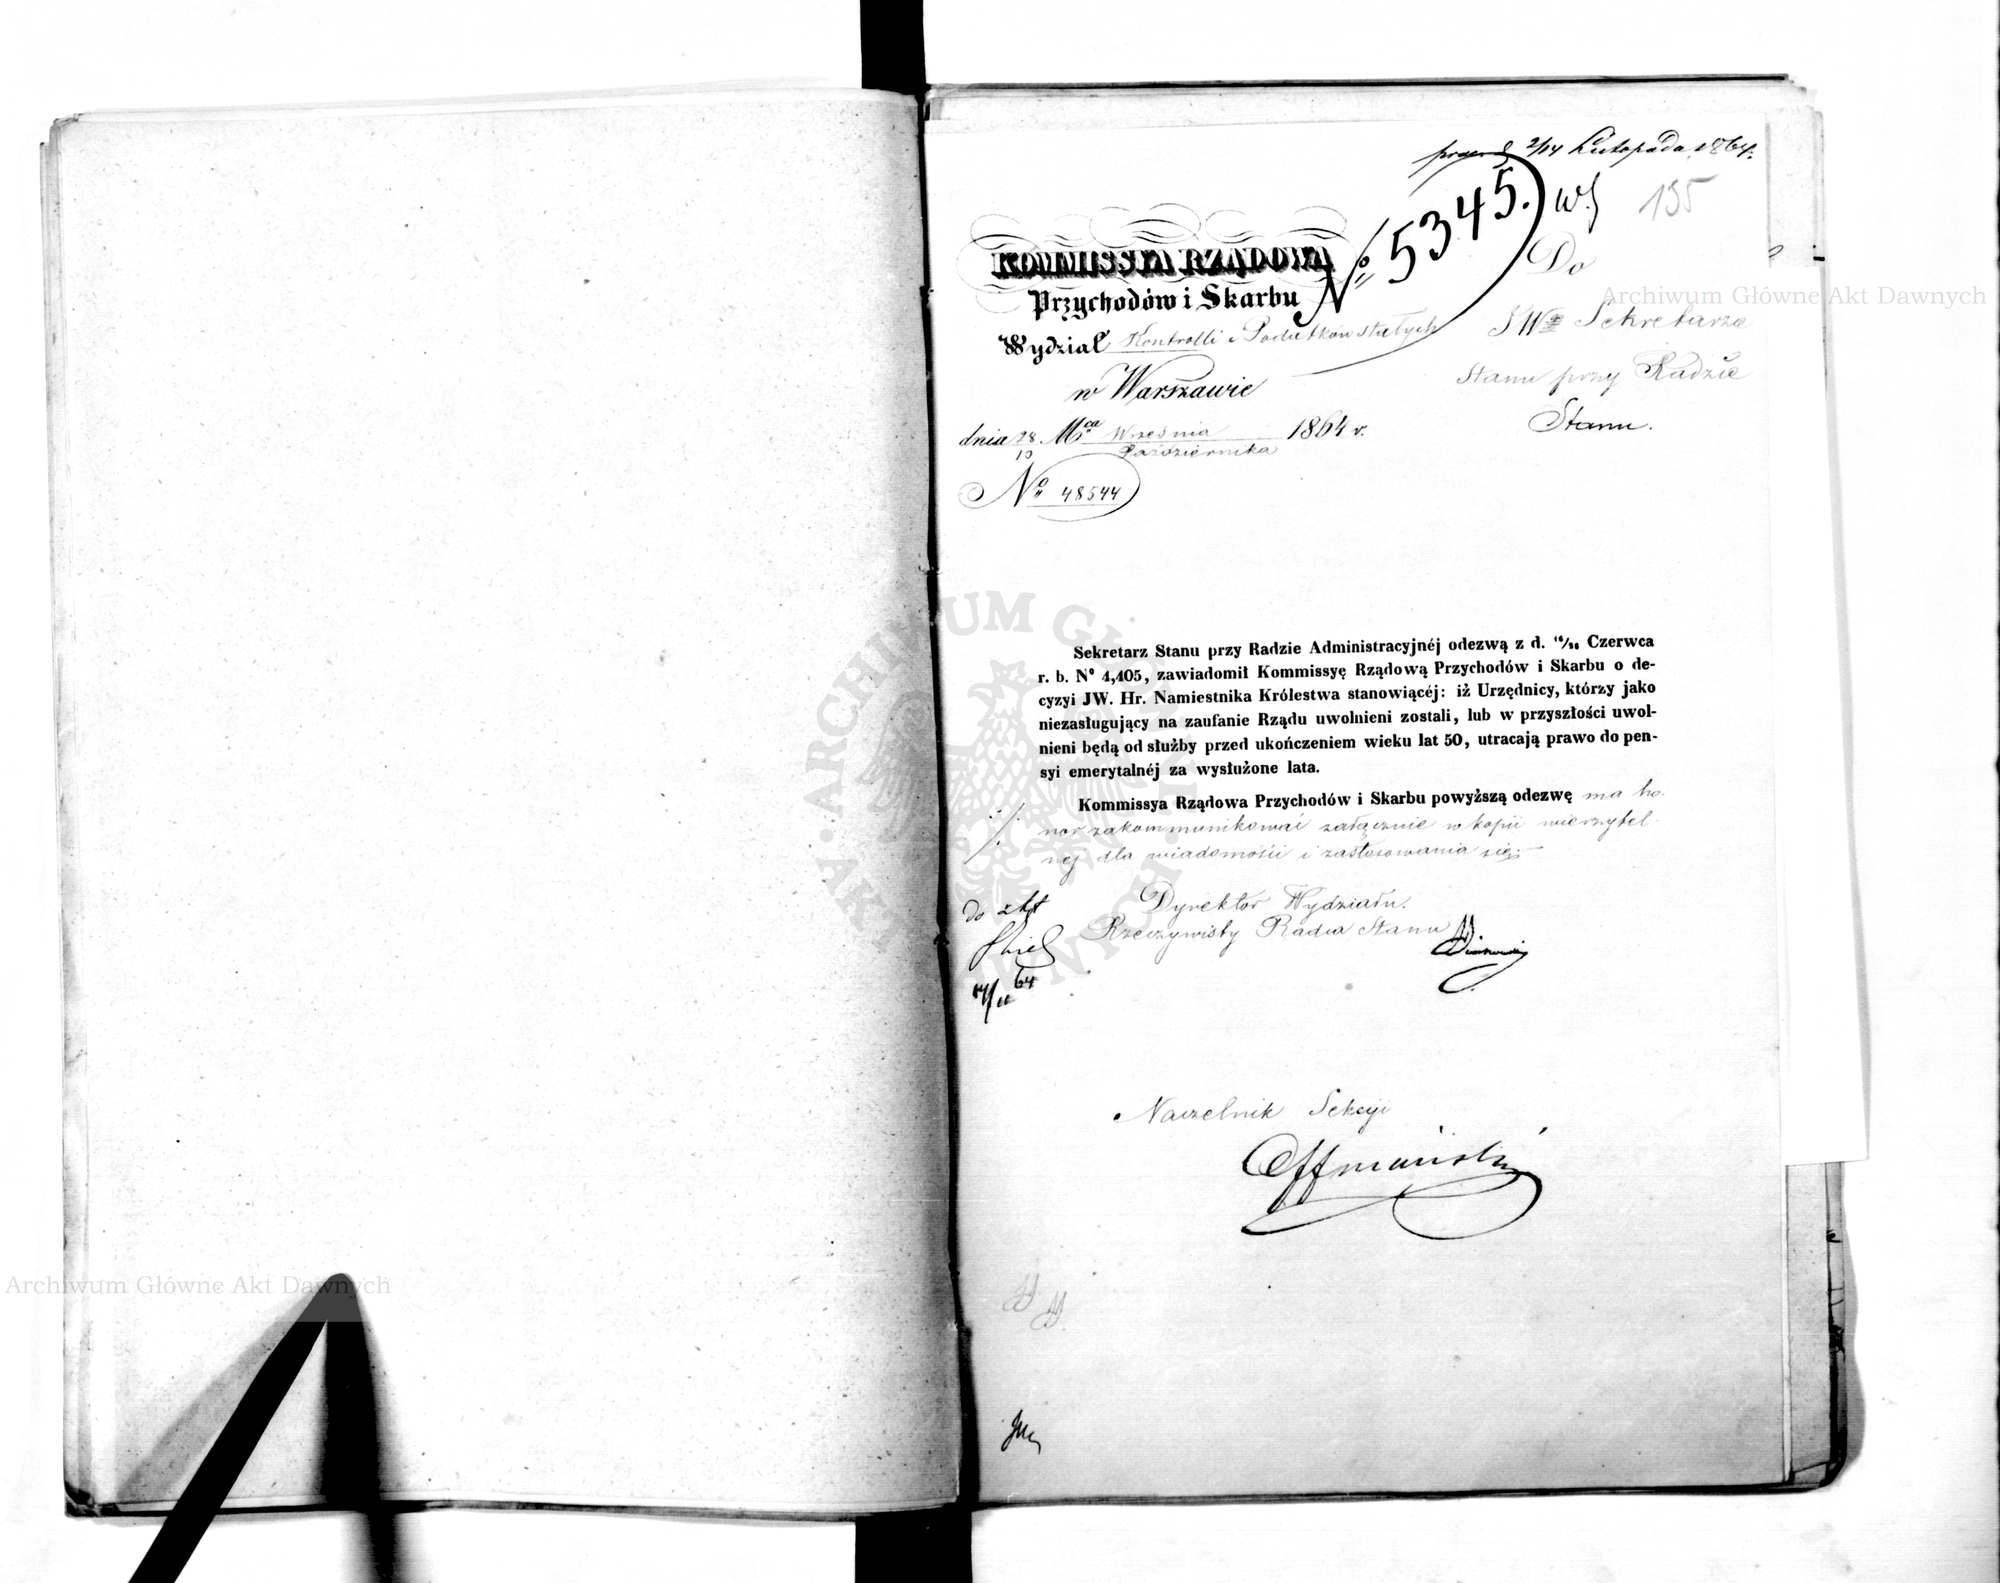 2/14 Listopada 1864.
No 5345.
135
KOMMISSYA RZĄDOWA
Przychodów i Skarbu
Wydział Kontrolli i Podatków stałych
w Warszawie
dnia 28/10 Mca Września/Października 1864 r.
No 48544
Do
JWo Sekretarza
Stanu przy Radzie
Stanu.
Sekretarz Stanu przy Radzie Administracyjnéj odezwą z d. Czerwca
r. b. No 4,405, zawiadomił Kommissyę Rządową Przychodów i Skarbu o de-
cyzyi JW. Hr. Namiestnika Królestwa stanowiącéj: iż Urzędnicy, którzy jako
niezasługujący na zaufanie Rządu uwolnieni zostali, lub w przyszłości uwol-
nieni będą od służby przed ukończeniem wieku lat 50, utracają prawo do pen-
syi emerytalnéj za wysłużone lata.
Kommissya Rządowa Przychodów i Skarbu powyższą odezwę ma ho-
nor zakommunikować załącznie w kopii wierzytel-
nej dla wiadomości i zastosowania się.
do akt
64
Dyrektor Wydziału.
Rzeczywisty Radca Stanu
Naczelnik Sekcyi
Offmański
Archiwum Główne Akt Dawnych
Archiwum Główne Akt Dawnych
ARCHIWUM GŁÓWNE AKT DAWNYCH